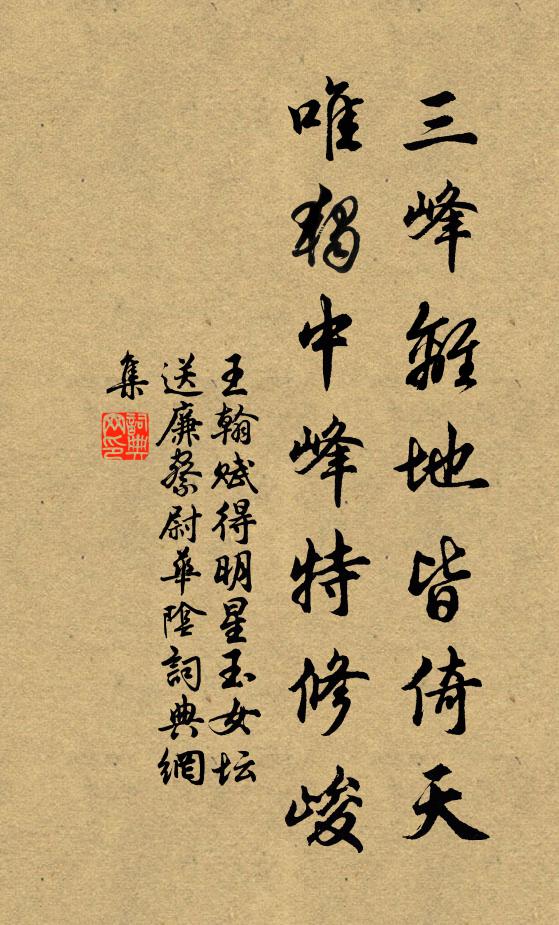 三峰離地皆倚天
唯獨中峰特修峻
王翰賦得明星玉女坛
送廉察尉華陰詞典網
集
詞典
网印